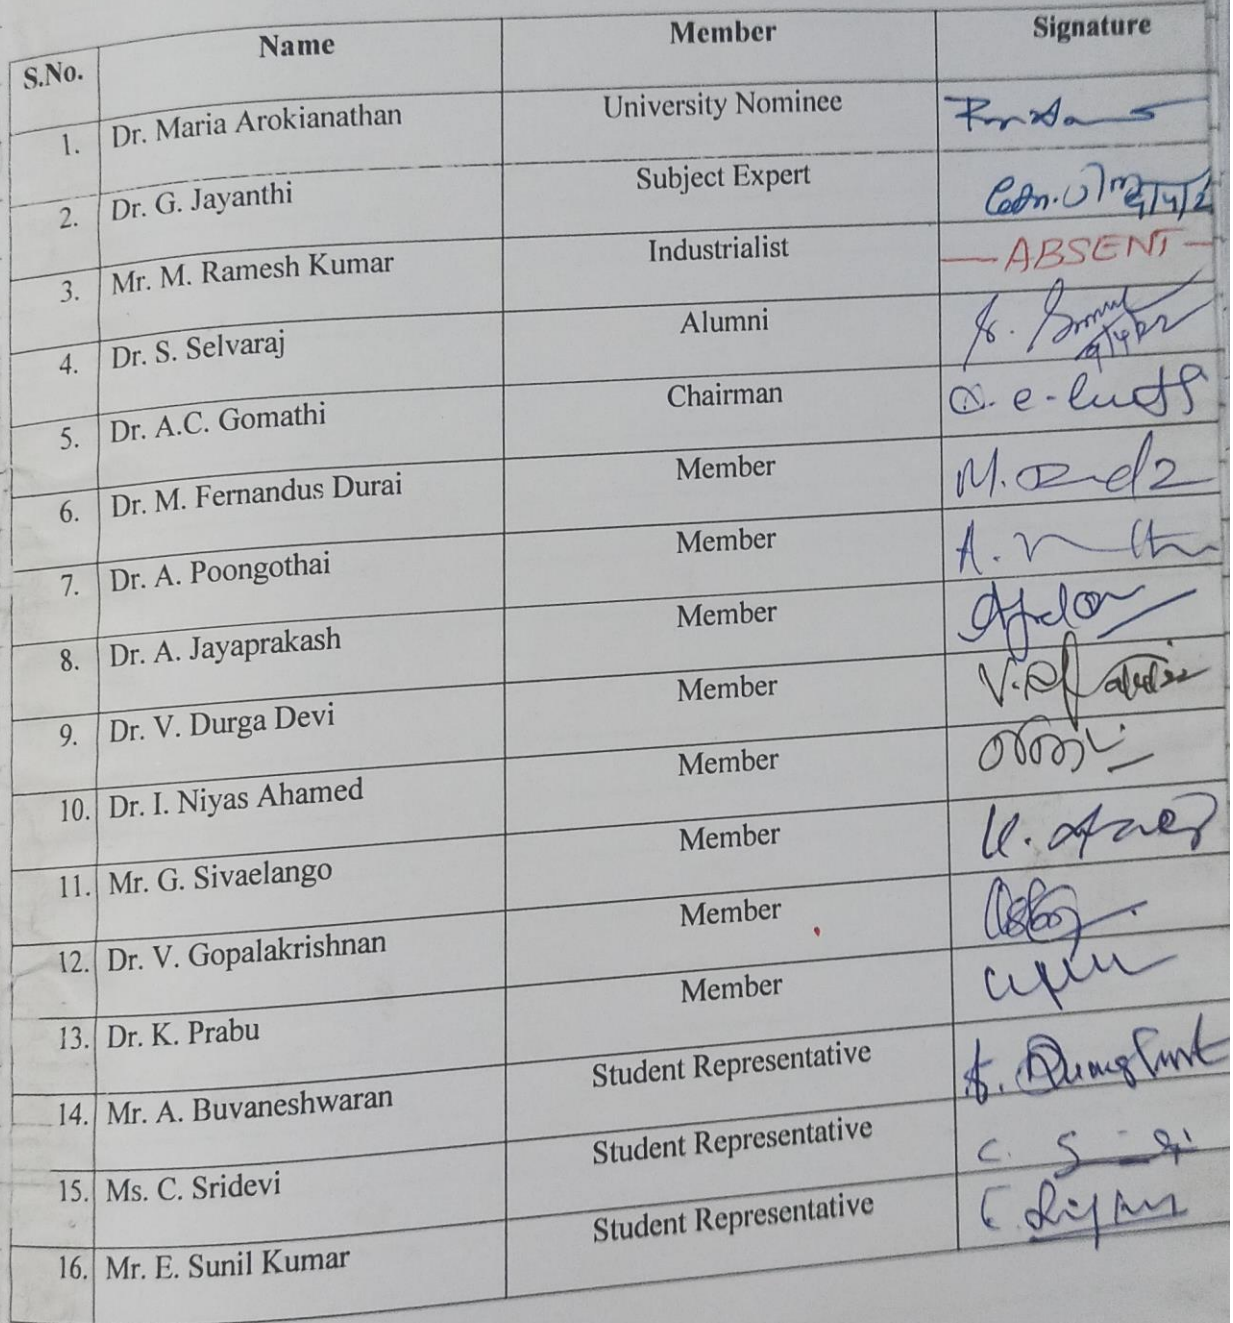 S.No. Name Member Signature
1. Dr. Maria Arokianathan University Nominee
2. Dr. G. Jayanthi Subject Expert
3. Mr. M. Ramesh Kumar Industrialist —ABSENT—
4. Dr. S. Selvaraj Alumni
5. Dr. A.C. Gomathi Chairman
6. Dr. M. Fernandus Durai Member
7. Dr. A. Poongothai Member
8. Dr. A. Jayaprakash Member
9. Dr. V. Durga Devi Member
10. Dr. I. Niyas Ahamed Member
11. Mr. G. Sivaelango Member
12. Dr. V. Gopalakrishnan Member
13. Dr. K. Prabu Member
14. Mr. A. Buvaneshwaran Student Representative
15. Ms. C. Sridevi Student Representative
16. Mr. E. Sunil Kumar Student Representative